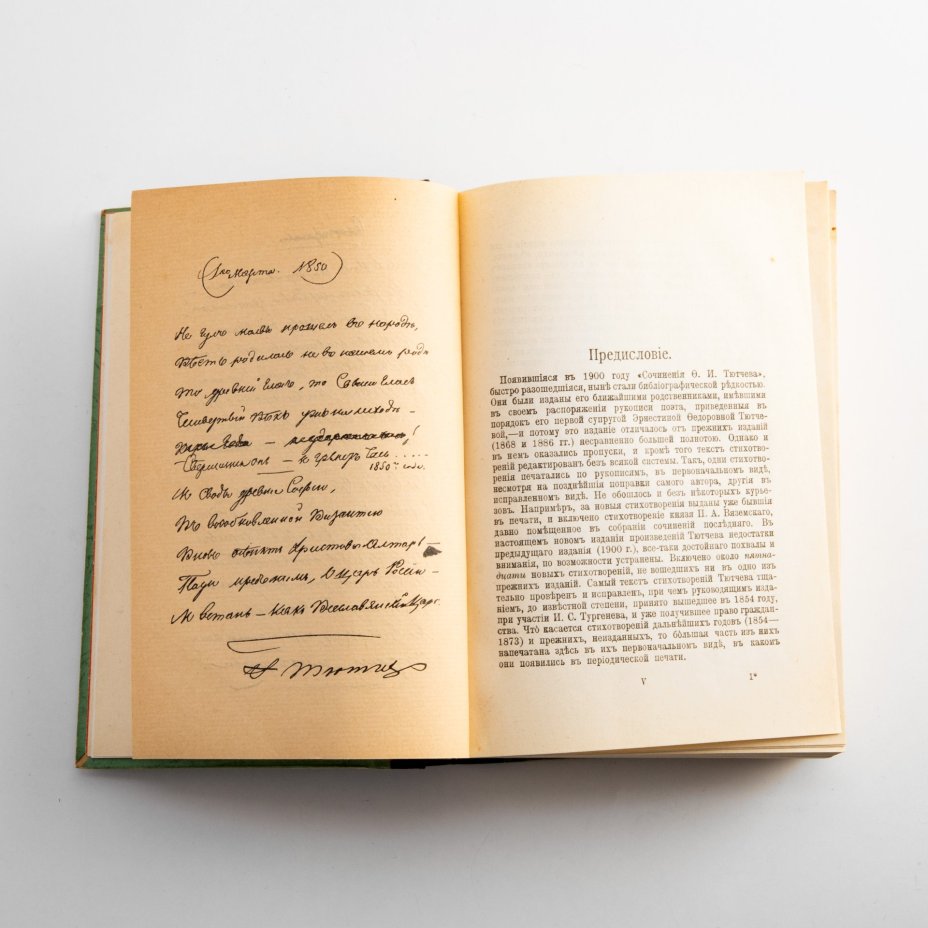 (1го Марта. 1850)
Не гулъ молвы прошелъ въ народѣ,
Вѣсть родилась не въ нашемъ родѣ
То древній гласъ, то свыше гласъ
Четвертый вѣкъ ужъ на исходѣ –
Свершится онъ – и грянетъ Часъ .....
1850го года.
И Своды древни Софіи,
Въ возобновленной Византіи
Вновь осѣнятъ Христовъ Олтарь –
Пади предъ нимъ, о Царь Россіи –
И встань – какъ Всеславянскій Царь.
Ѳ. Тютчевъ
Предисловіе.
Появившіяся въ 1900 году «Сочиненія Ѳ. И. Тютчева»,
быстро разошедшіяся, нынѣ стали библіографической рѣдкостью.
Они были изданы его ближайшими родственниками, имѣвшими
въ своемъ распоряженіи рукописи поэта, приведенныя въ
порядокъ его первой супругой Эрнестиной Ѳедоровной Тютче-
вой,—и потому это изданіе отличалось отъ прежнихъ изданій
(1868 и 1886 гг.) несравненно большей полнотою. Однако и
въ немъ оказались пропуски, и кромѣ того текстъ стихотво-
реній редактированъ безъ всякой системы. Такъ, одни стихотво-
ренія печатались по рукописямъ, въ первоначальномъ видѣ,
несмотря на позднѣйшія поправки самого автора, другія въ
исправленномъ видѣ. Не обошлось и безъ нѣкоторыхъ курье-
зовъ. Напримѣръ, за новыя стихотворенія выданы уже бывшія
въ печати, и включено стихотвореніе князя П. А. Вяземскаго,
давно помѣщенное въ собраніи сочиненій послѣдняго. Въ
настоящемъ новомъ изданіи произведеній Тютчева недостатки
предыдущаго изданія (1900 г.), все-таки достойнаго похвалы и
вниманія, по возможности устранены. Включено около пятна-
дцати новыхъ стихотвореній, не вошедшихъ ни въ одно изъ
прежнихъ изданій. Самый текстъ стихотвореній Тютчева тща-
тельно провѣренъ и исправленъ, при чемъ руководящимъ изда-
ніемъ, до извѣстной степени, принято вышедшее въ 1854 году,
при участіи И. С. Тургенева, и уже получившее право граждан-
ства. Что́ касается стихотвореній дальнѣйшихъ годовъ (1854—
1873) и прежнихъ, неизданныхъ, то бо́льшая часть изъ нихъ
напечатана здѣсь въ ихъ первоначальномъ видѣ, въ какомъ
они появились въ періодической печати.
V
1*